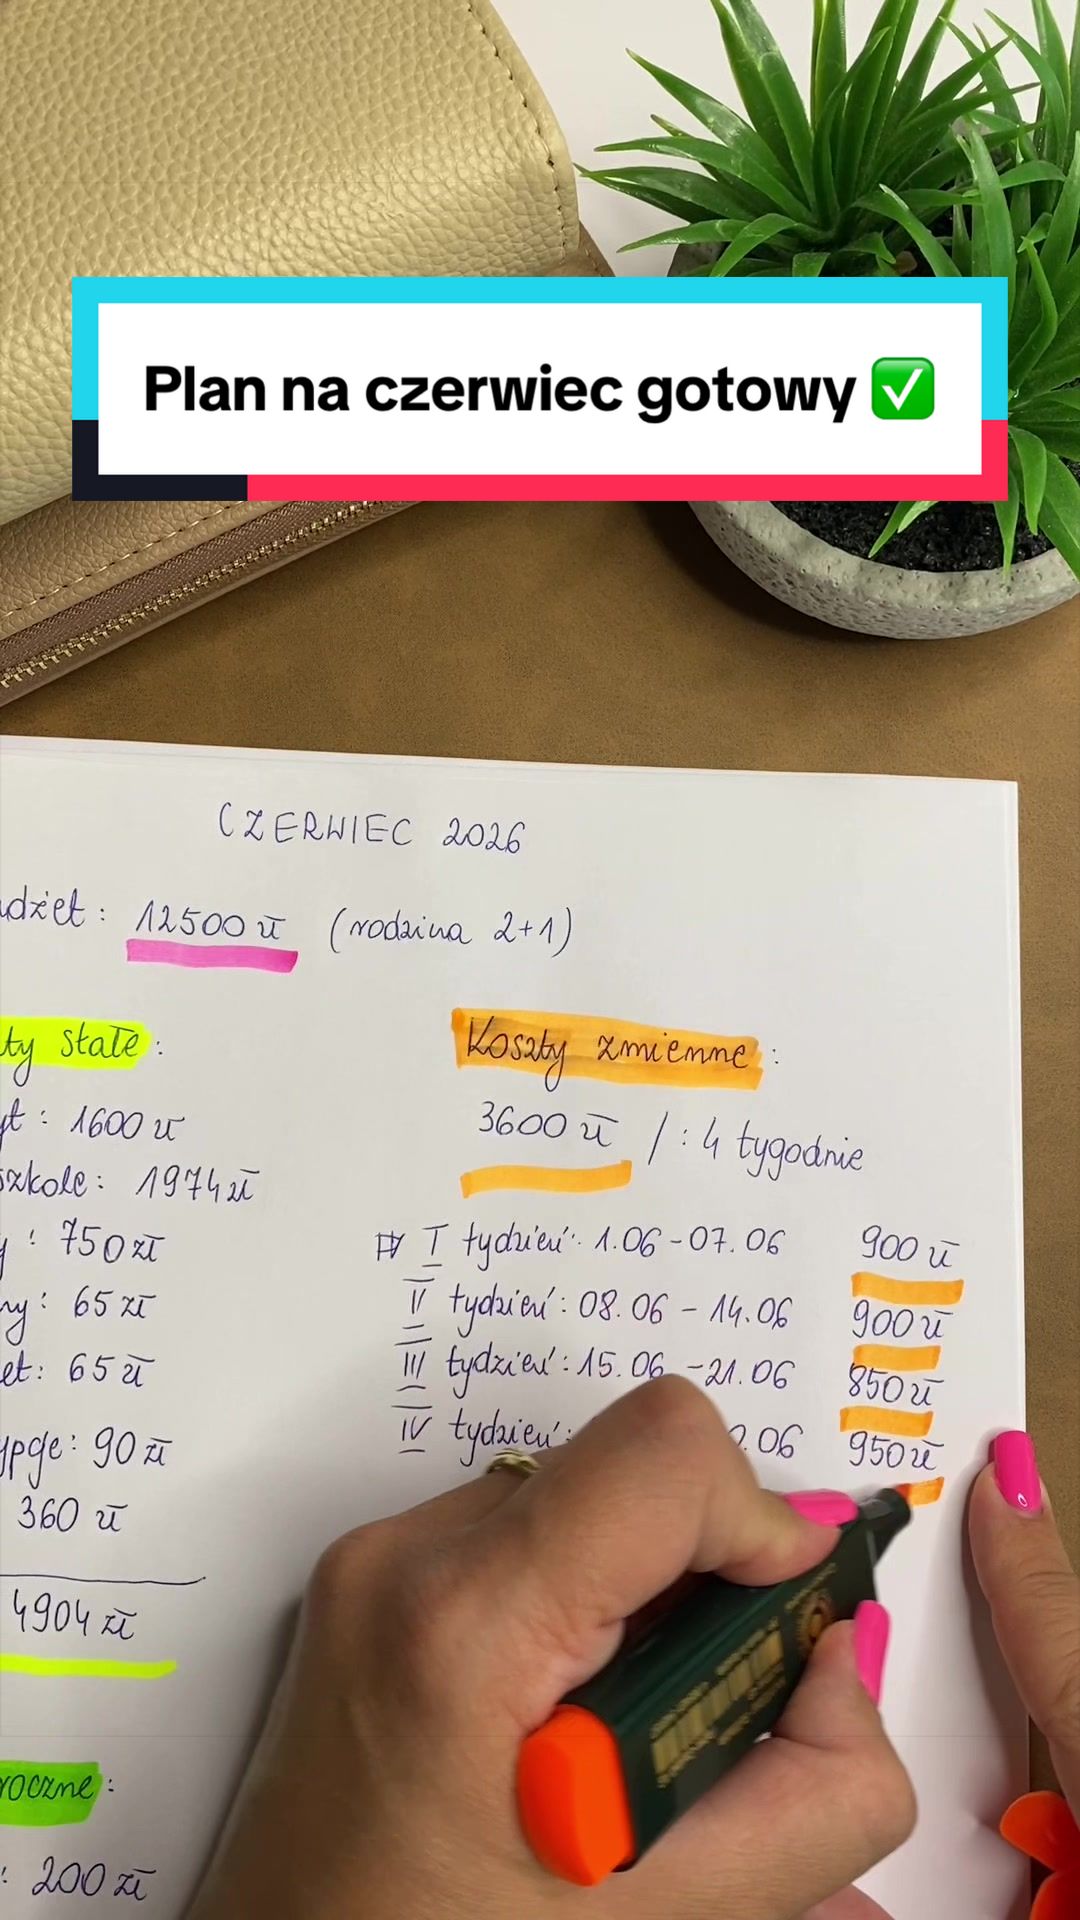 Plan na czerwiec gotowy ✅
CZERWIEC 2026
udżet: 12500 zł (rodzina 2+1)
ty stałe:
yt: 1600 zł
szkole: 1974 zł
y: 750 zł
ny: 65 zł
et: 65 zł
ypcje: 90 zł
360 zł
4904 zł
roczne:
: 200 zł
Koszty zmienne:
3600 zł /: 4 tygodnie
I tydzień: 1.06 - 07.06 900 zł
II tydzień: 08.06 - 14.06 900 zł
III tydzień: 15.06 - 21.06 850 zł
IV tydzień: .06 950 zł